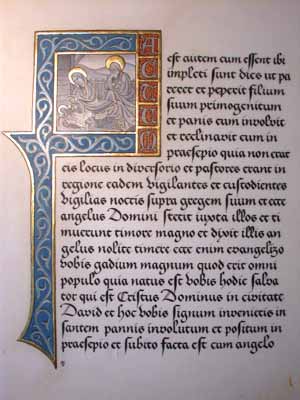 FACTUM
est autem cum essent ibi
impleti sunt dies ut pa
reret et peperit filium
suum primogenitum
et panis eum involvit
et reclinavit eum in
praesepio quia non erat
eis locus in diversorio et pastores erant in
regione eadem vigilantes et custodientes
vigilias noctis supra gregem suum et ecce
angelus Domini stetit iuxta illos et ti
muerunt timore magno et dixit illis an
gelus nolite timere ecce enim evangelizo
vobis gadium magnum quod erit omni
populo quia natus est vobis hodie salva
tor qui est Cristus Dominus in civitate
David et hoc vobis signum invenietis in
fantem pannis involutum et positum in
praesepio et subito facta est cum angelo